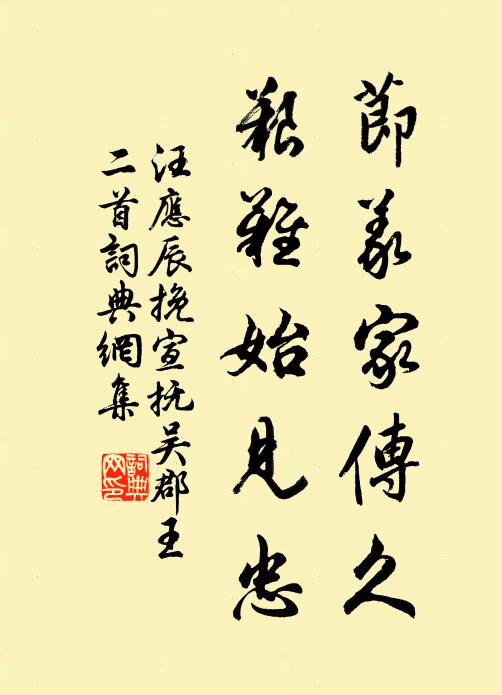 節義家傳久
艱難始見忠
汪應辰挽宣抚吴郡王
二首詞典網集
詞典网印